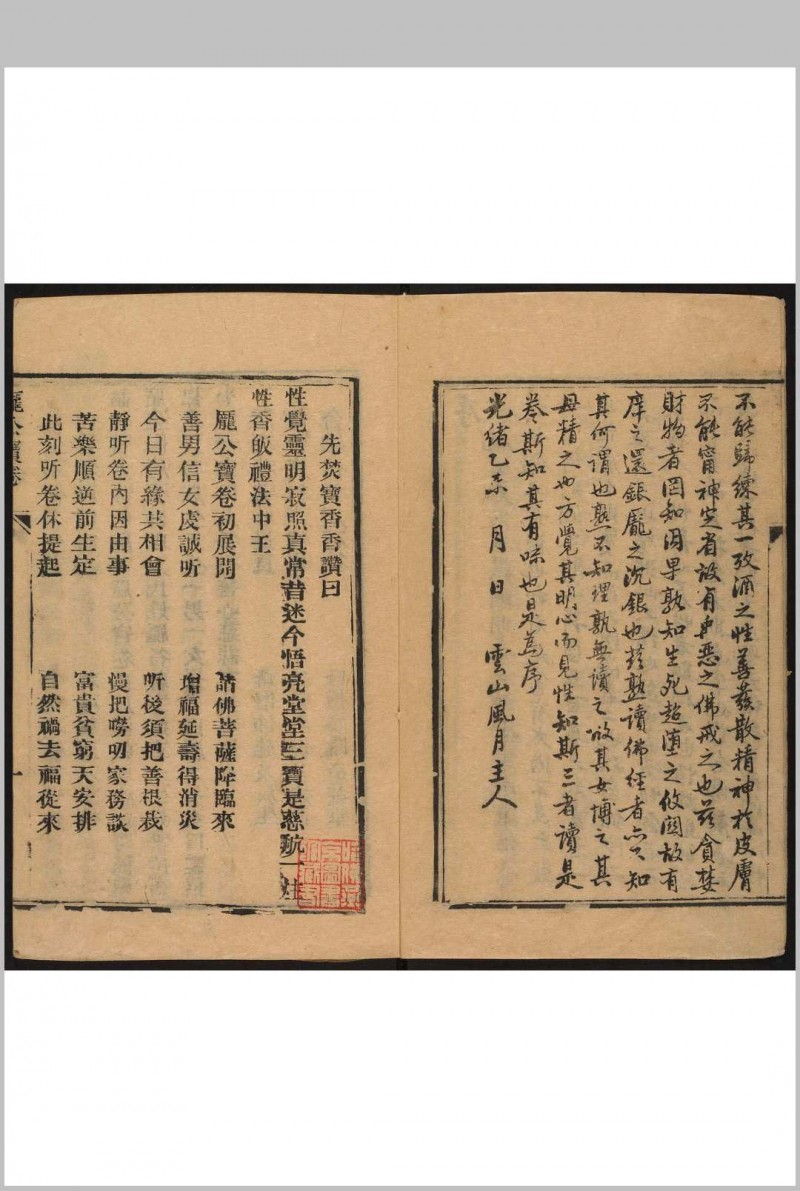 不能歸練其一孜酒之性善發散精神於皮膚
不能甯神定省故有史惡之佛戒之也茲貪婪
財物者罔知因果孰知生死超墮之攸關故有
庠之還銀龐之沉銀也茲熟讀佛經者亦不知
其何謂也熟不知理孰無讀之故其女博之其
母精之如方覺其明心而見性知斯三者讀是
卷斯知其有味也是為序
光緒乙未 月 日 雲山風月主人
先焚寶香香讚曰
性覺靈明寂照真常昔迷今悟亮堂堂三寶是慈航一炷
性香皈禮法中王
龐公寶卷初展開 諸佛菩薩降臨來
善男信女虔誠听 增福延壽得消災
今日有緣共相會 听後須把善根栽
靜听卷內因由事 慢把嘮叨家務談
苦樂順逆前生定 富貴貧窮天安排
此刻听卷休提起 自然禍去福從來
龐公寶卷 一